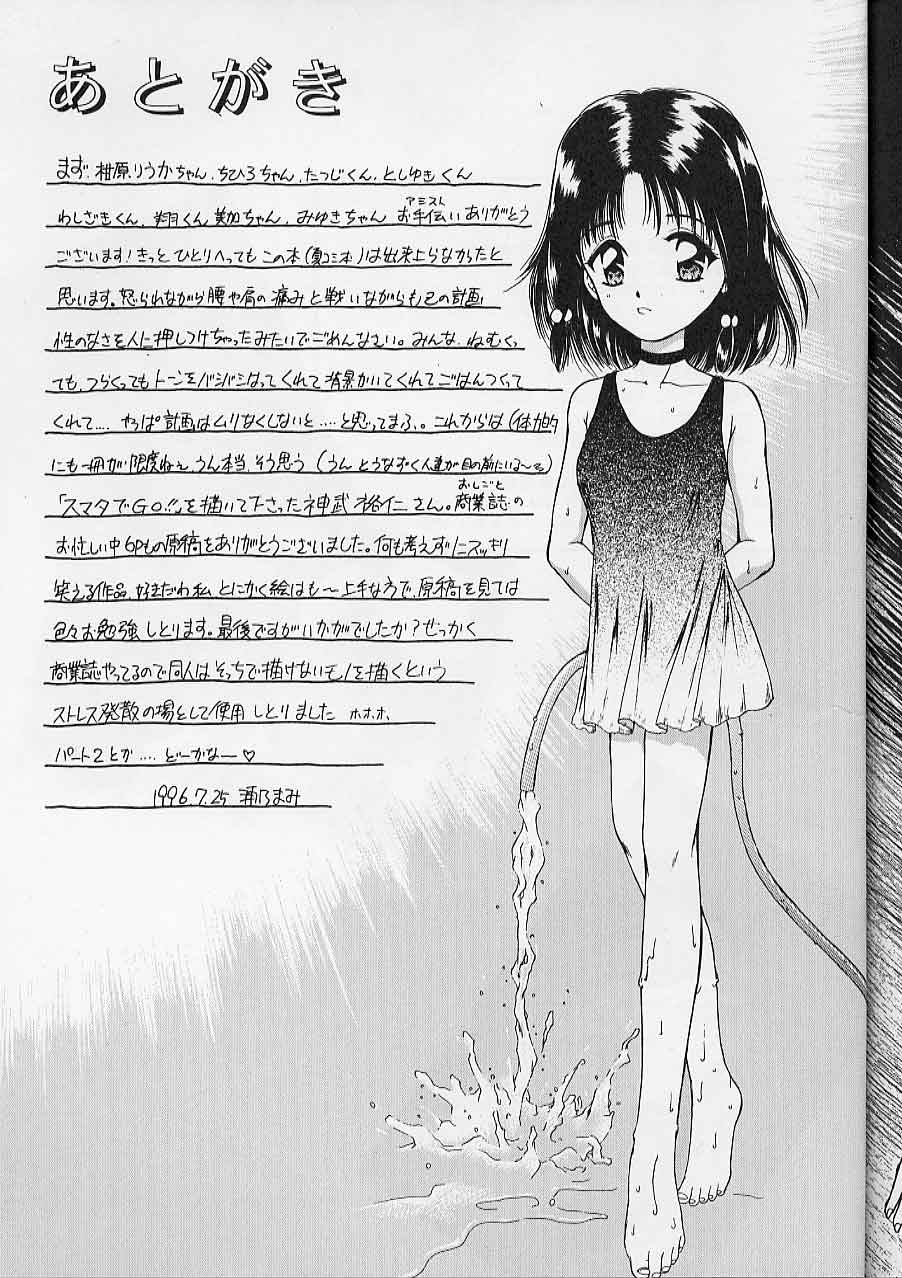 あとがき
まず、柑原りうかちゃん、ちひろちゃん、たつじくん、としゆきくん
わしざきくん、翔くん、美加ちゃん、みゆきちゃん お手伝いありがとう
アシスト
ございます！きっと ひとりへっても この本（夏コミ本）は出来上らなかったと
思います。怒られながら腰や肩の痛みと戦いながらも己の計画
性のなさを人に押しつけちゃったみたいでごめんなさい。みんな、ねむくっ
ても、つらくってもトーンをバシバシはってくれて背景かいてくれてごはんつくって
くれて.... やっぱ計画はムリなくしないと....と思ってまふ。これからは（体力的
にも一冊が限度ねぇ、うん本当、そう思う（うんとうなずく人達が目の前にいる〜る）
「スマタでGO!!」を描いて下さった神武裕仁さん。商業誌の
おしごと
お忙しい中6Pもの原稿をありがとうございました。何も考えずにニズッキリ
笑える作品、好きだわ私、とにかく絵はも〜上手なうで、原稿を見ては
色々お勉強しとります。最後ですがいかがでしたか？せっかく
商業誌やってるので同人はそっちで描けないモノを描くという
ストレス発散の場として使用しとりました ホホホ、
パート2とか.... どーかなー♡
1996.7.25 瀬乃まみ